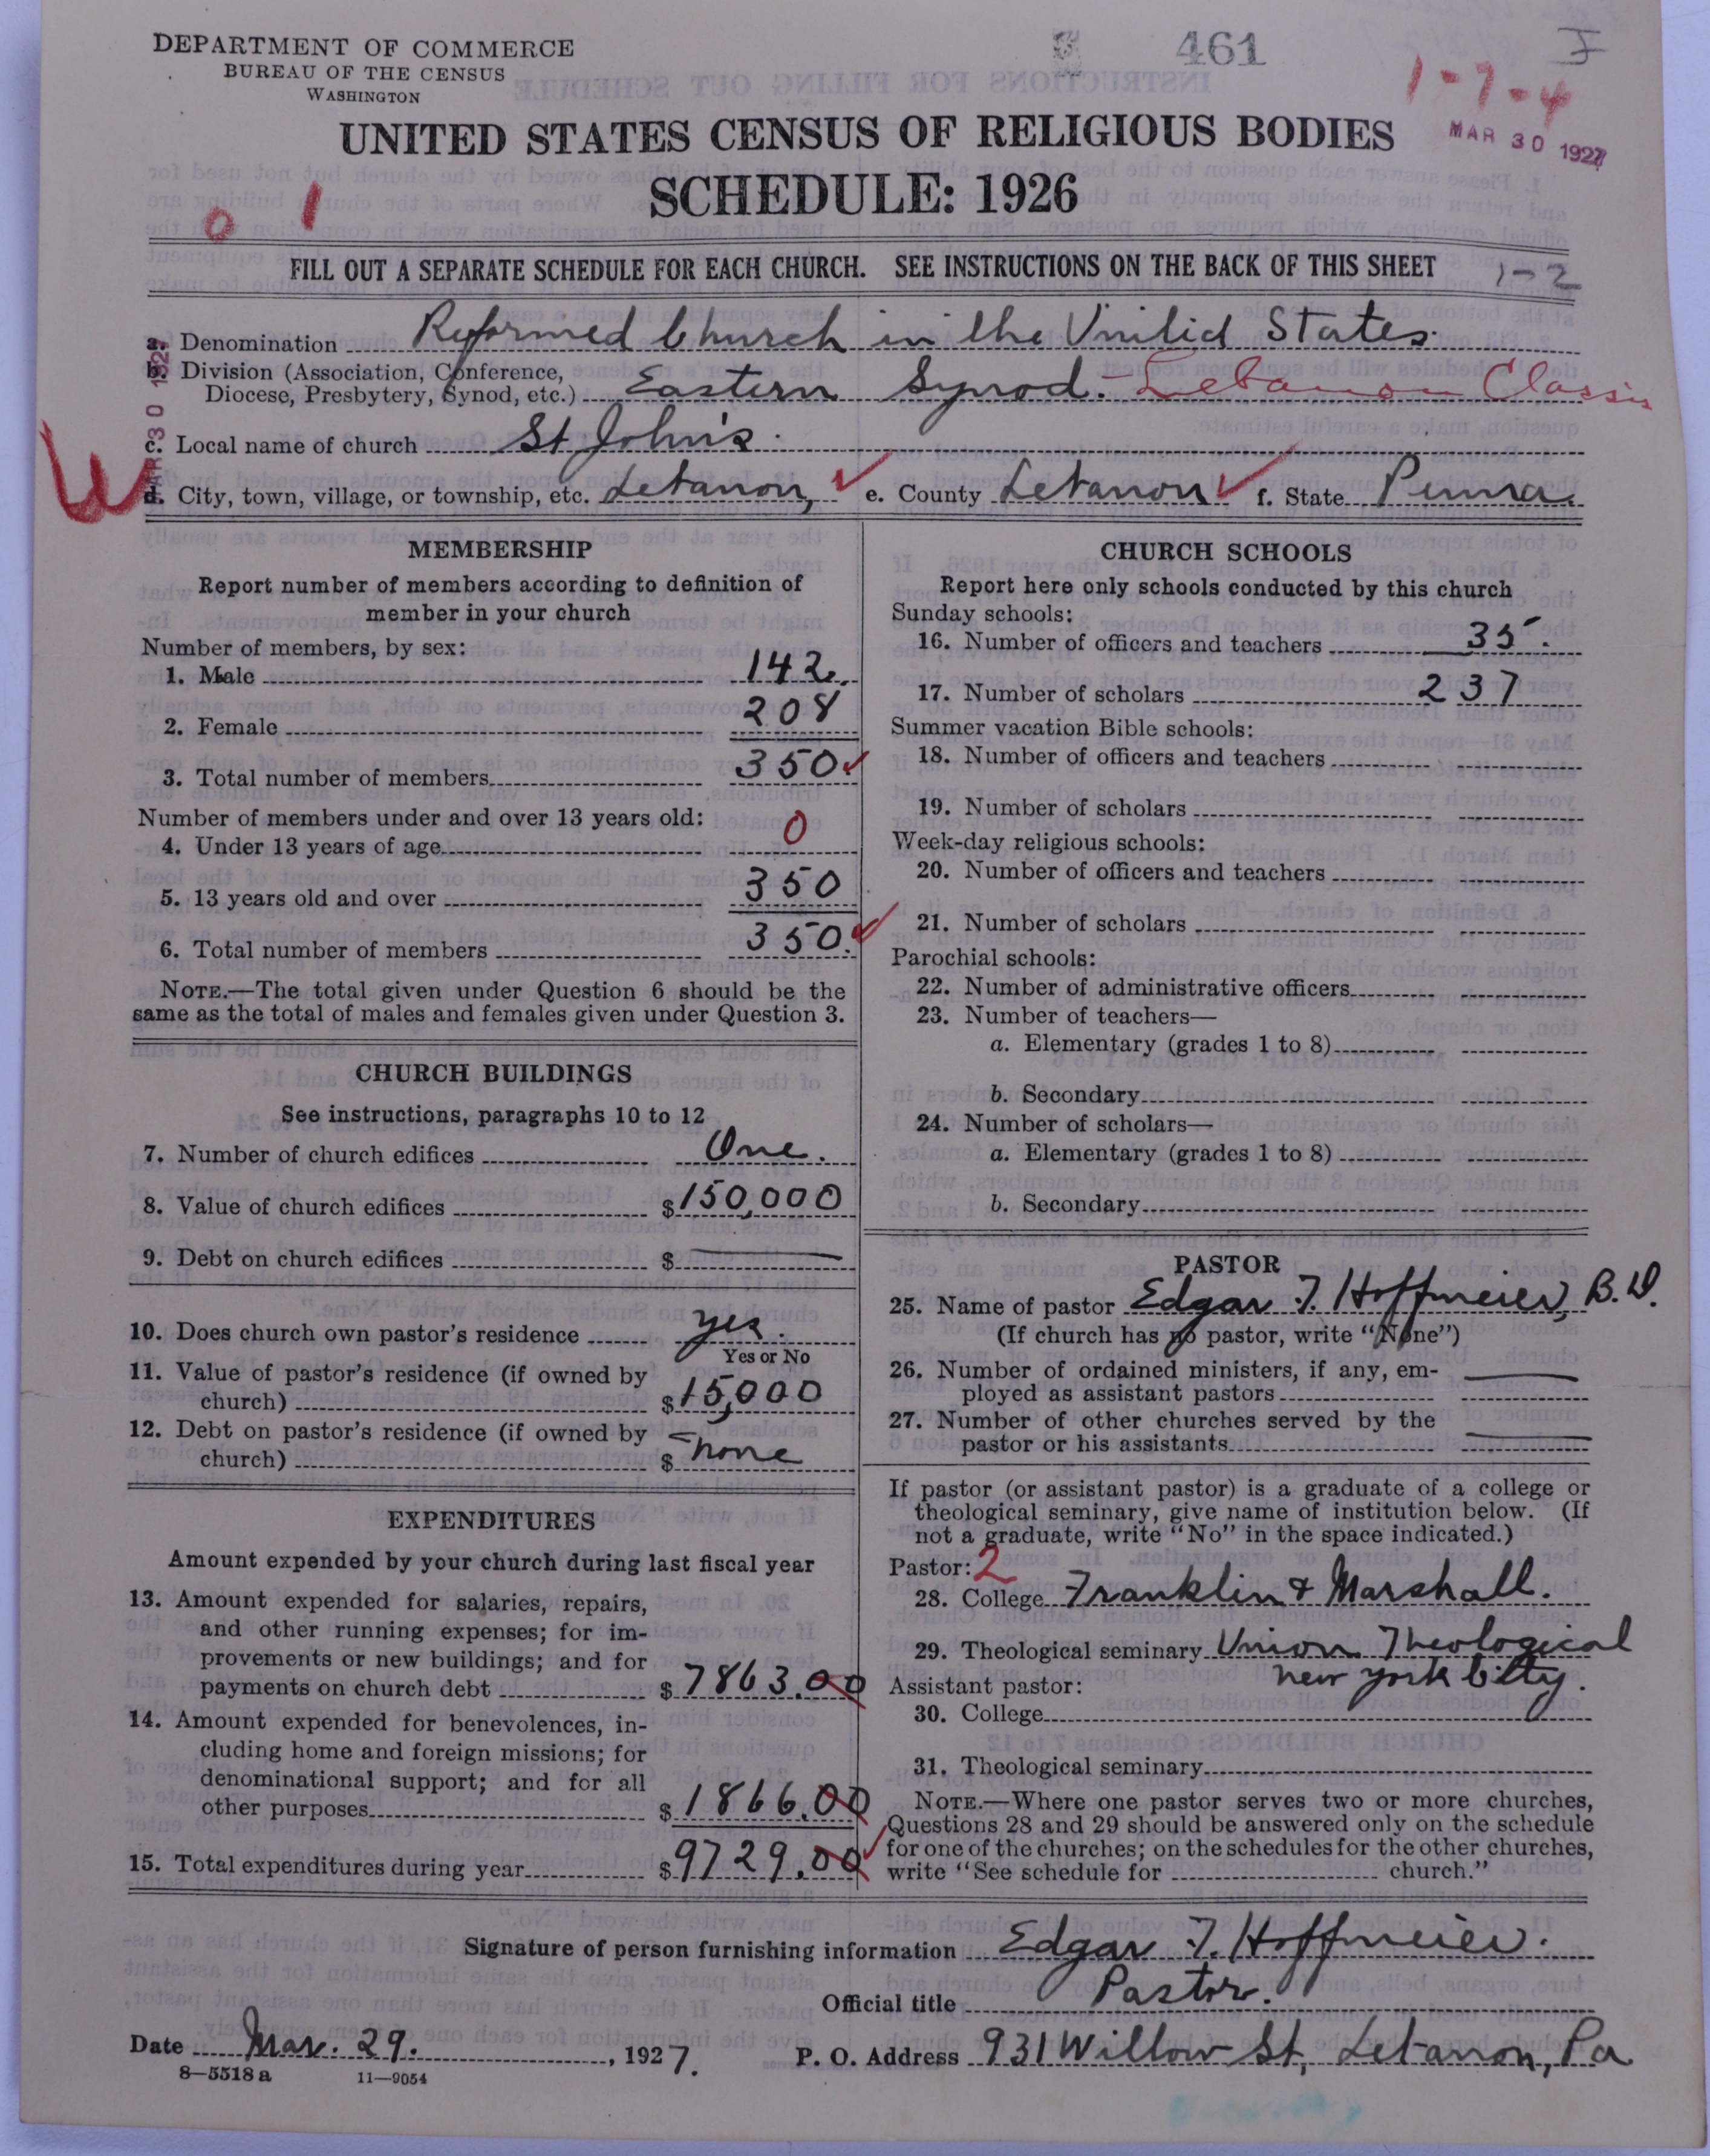 DEPARTMENT OF COMMERCE
BUREAU OF THE CENSUS
WASHINGTON
461
I
1-7-4
MAR 30 1927
UNITED STATES CENSUS OF RELIGIOUS BODIES
SCHEDULE: 1926
0 1
FILL OUT A SEPARATE SCHEDULE FOR EACH CHURCH. SEE INSTRUCTIONS ON THE BACK OF THIS SHEET 1-2
a. Denomination Reformed Church in the United States.
b. Division (Association, Conference,
Diocese, Presbytery, Synod, etc.) Eastern Synod. - Lebanon Classis
c. Local name of church St John's.
d. City, town, village, or township, etc. Lebanon, e. County Lebanon f. State Penna.
MEMBERSHIP
Report number of members according to definition of
member in your church
Number of members, by sex:
1. Male 142.
2. Female 208
3. Total number of members 350
Number of members under and over 13 years old:
4. Under 13 years of age 0
5. 13 years old and over 350
6. Total number of members 350.
NOTE.—The total given under Question 6 should be the
same as the total of males and females given under Question 3.
CHURCH BUILDINGS
See instructions, paragraphs 10 to 12
7. Number of church edifices One.
8. Value of church edifices $150,000
9. Debt on church edifices $ —
10. Does church own pastor's residence yes.
Yes or No
11. Value of pastor's residence (if owned by
church) $15,000
12. Debt on pastor's residence (if owned by
church) $ none
EXPENDITURES
Amount expended by your church during last fiscal year
13. Amount expended for salaries, repairs,
and other running expenses; for im-
provements or new buildings; and for
payments on church debt $7863.00
14. Amount expended for benevolences, in-
cluding home and foreign missions; for
denominational support; and for all
other purposes $1866.00
15. Total expenditures during year $9729.00
CHURCH SCHOOLS
Report here only schools conducted by this church
Sunday schools:
16. Number of officers and teachers 35.
17. Number of scholars 237
Summer vacation Bible schools:
18. Number of officers and teachers
19. Number of scholars
Week-day religious schools:
20. Number of officers and teachers
21. Number of scholars
Parochial schools:
22. Number of administrative officers
23. Number of teachers—
a. Elementary (grades 1 to 8)
b. Secondary
24. Number of scholars—
a. Elementary (grades 1 to 8)
b. Secondary
PASTOR
25. Name of pastor Edgar F. Hoffmeier, B.D.
(If church has no pastor, write "None")
26. Number of ordained ministers, if any, em-
ployed as assistant pastors —
27. Number of other churches served by the
pastor or his assistants —
If pastor (or assistant pastor) is a graduate of a college or
theological seminary, give name of institution below. (If
not a graduate, write "No" in the space indicated.)
Pastor: 2
28. College Franklin & Marshall.
29. Theological seminary Union Theological
New York City.
Assistant pastor:
30. College
31. Theological seminary
NOTE.—Where one pastor serves two or more churches,
Questions 28 and 29 should be answered only on the schedule
for one of the churches; on the schedules for the other churches,
write "See schedule for church."
Signature of person furnishing information Edgar F. Hoffmeier.
Official title Pastor.
Date Mar. 29., 1927.
P. O. Address 931 Willow St, Lebanon, Pa
8—5518 a 11—9054